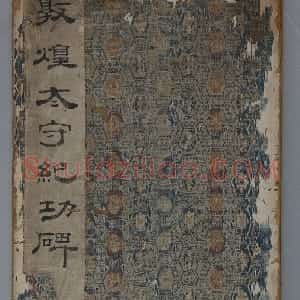 敦煌太守紀功碑
Shufazidian.com